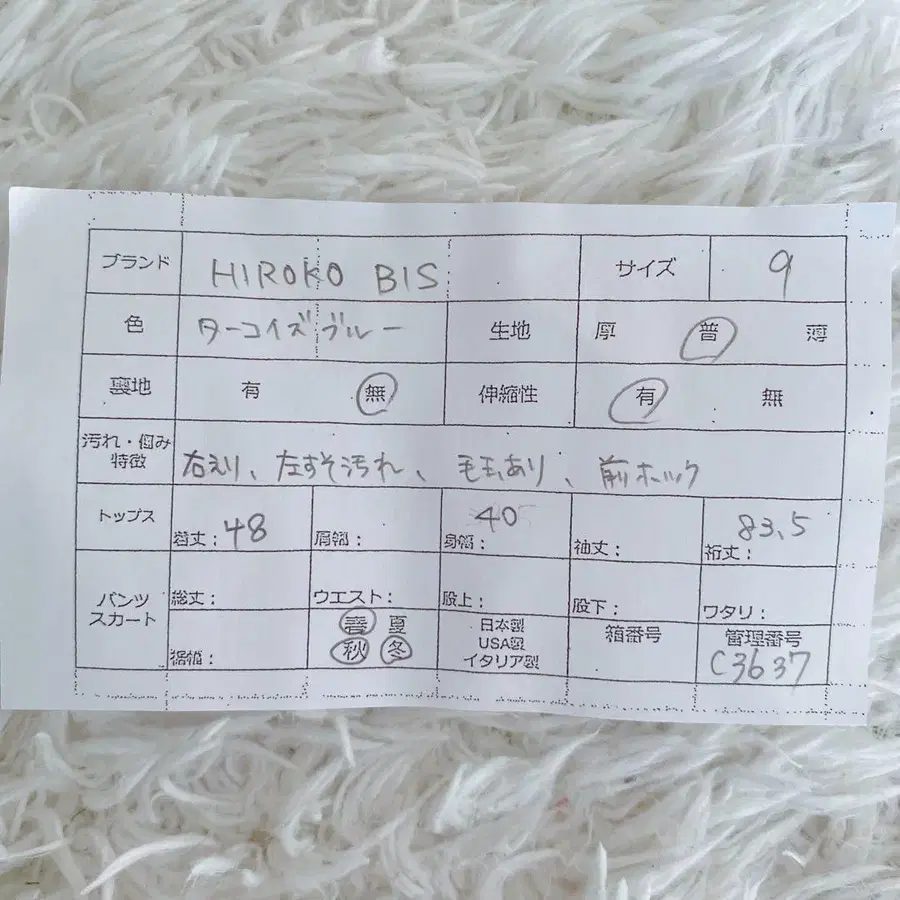 ブランド HIROKO BIS サイズ 9
色 ターコイズブルー 生地 厚 普 薄
裏地 有 無 伸縮性 有 無
汚れ・傷み
特徴 右えり、左すそ汚れ、毛玉あり、前ホック
トップス 着丈：48 肩幅： 身幅：40 袖丈： 裄丈：83.5
パンツ
スカート 総丈： ウエスト： 股上： 股下： ワタリ：
裾幅： 春 夏 秋 冬 日本製 USA製 イタリア製 箱番号 管理番号 C3637